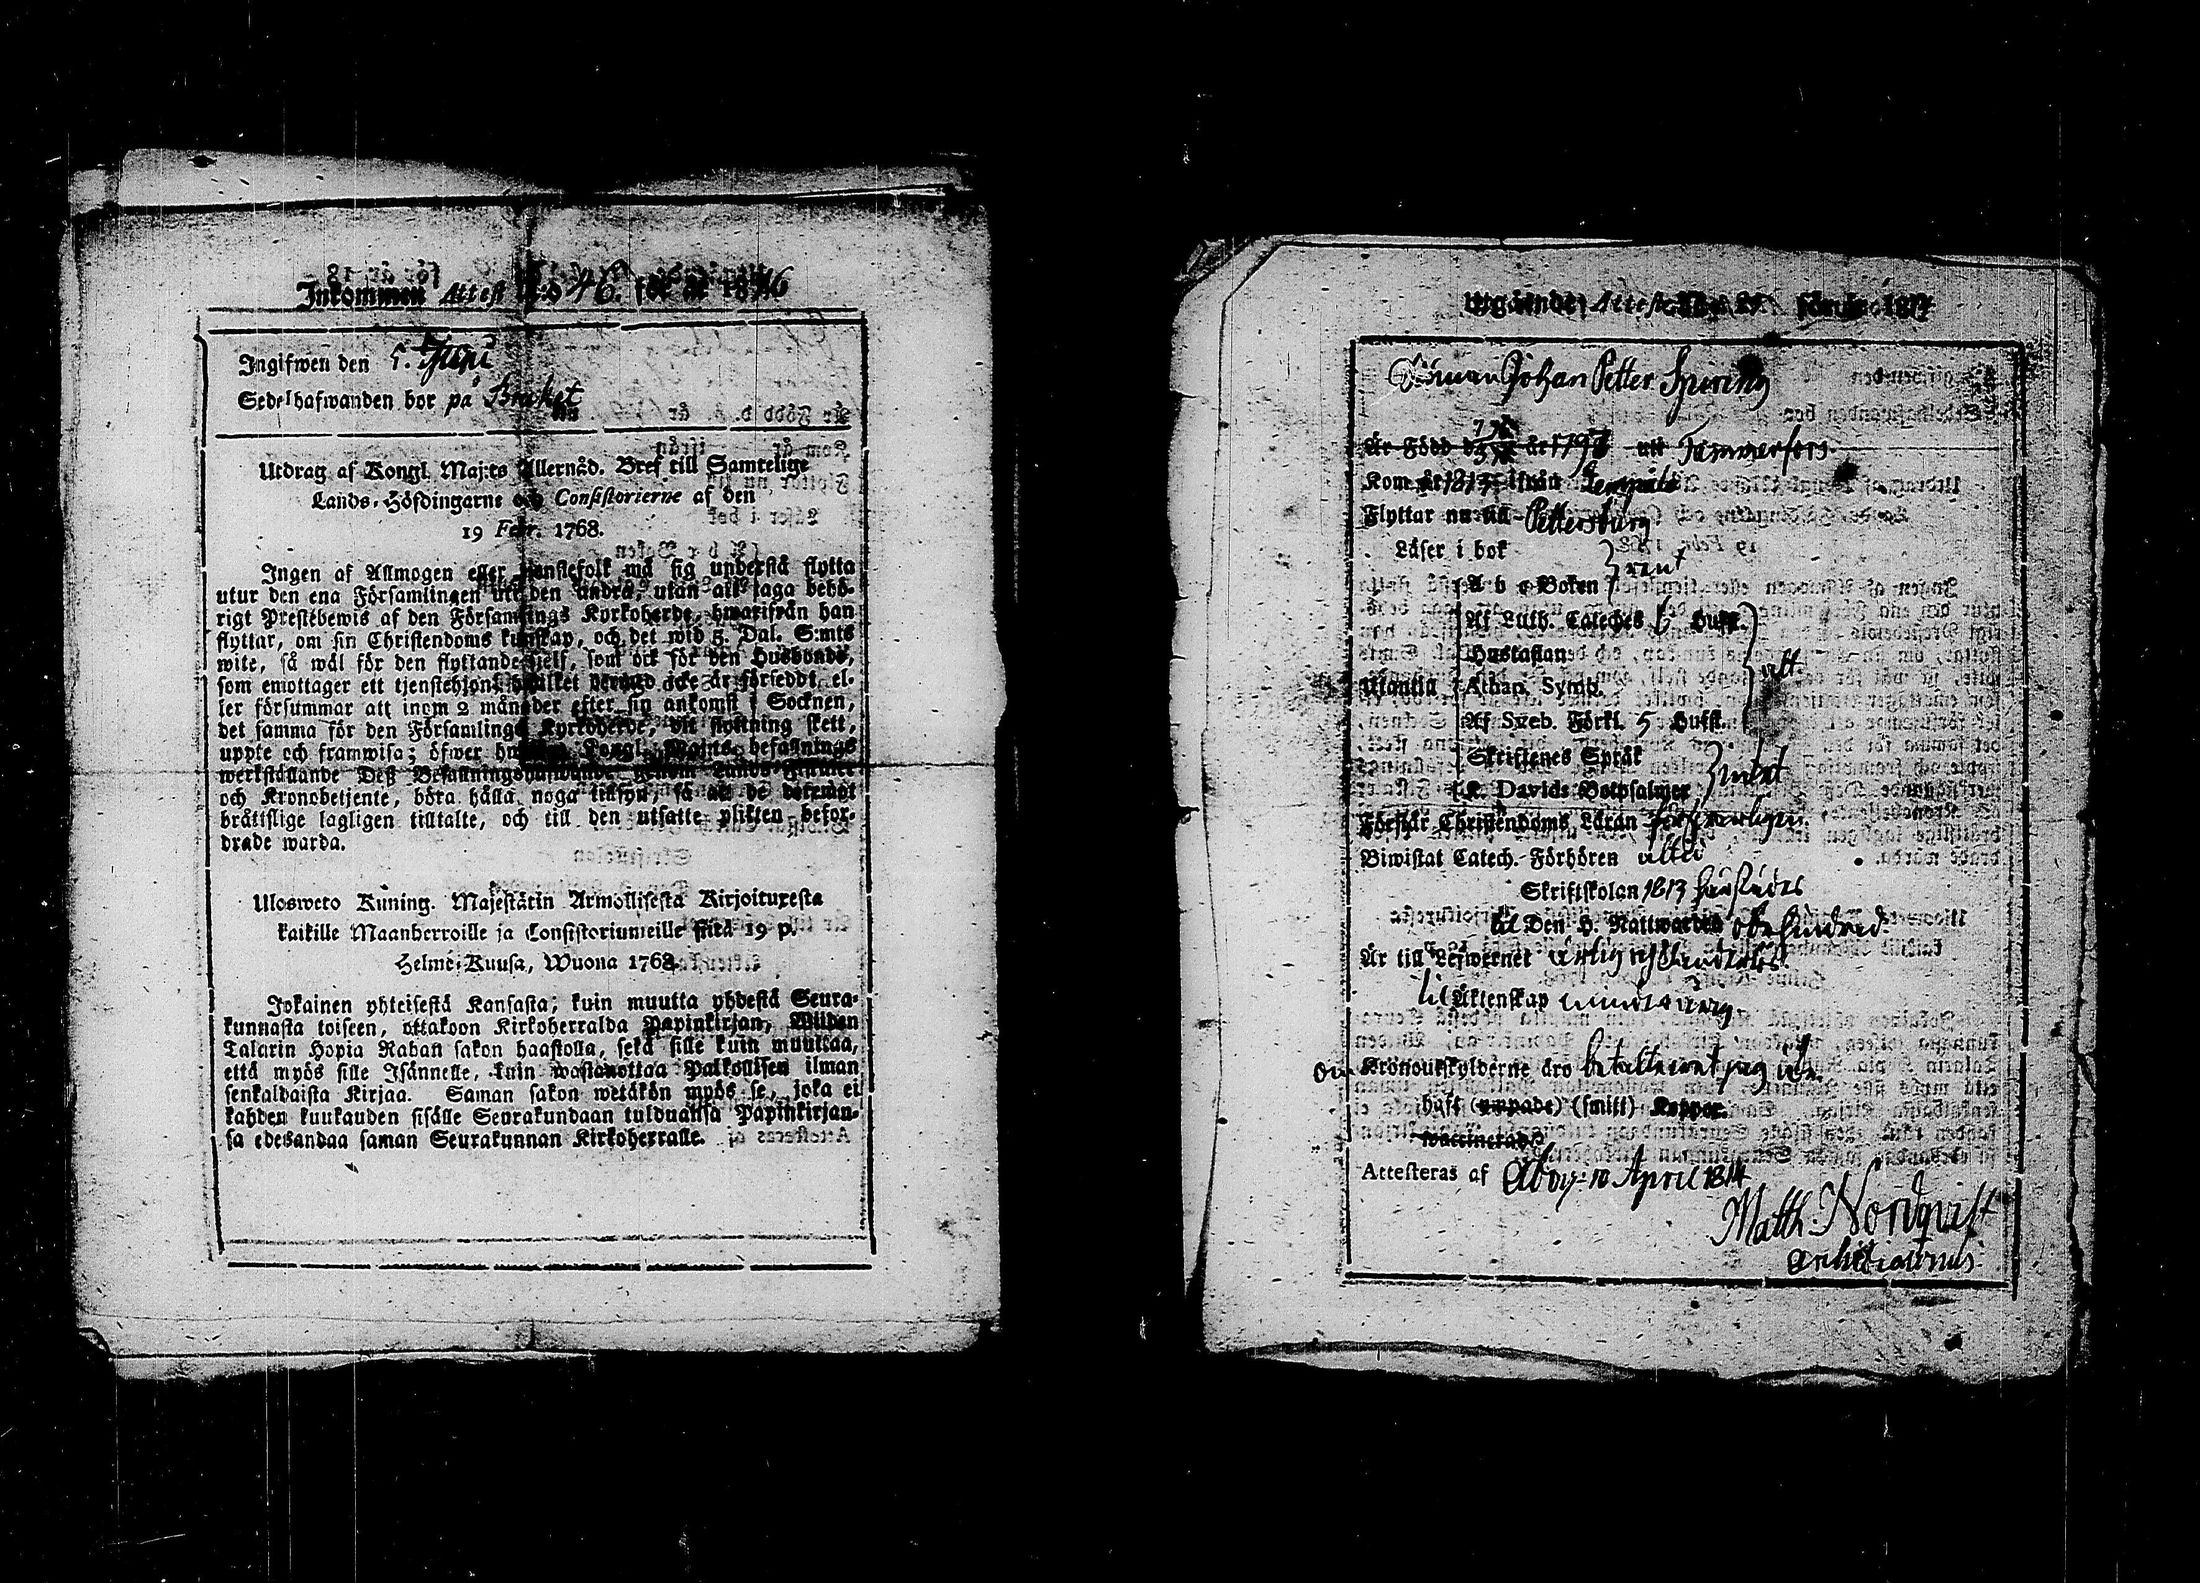 Inkommen Attest N:o 46. för år 1816
Ingifwen den 5. Juni
Sedelhafwanden bor på Bruket
Utdrag af Kongl. Maj:ts Allernåd. Bref till Samtelige
Lands-Höfdingarne och Consistorierne af den
19 Febr. 1768.
Ingen af Allmogen eller tjenstefolk må sig understå flytta
utur den ena Församlingen uti den andra, utan att taga behö-
rigt Prestebewis af den Församlings Kyrkoherde, hwarifrån han
flyttar, om sin Christendoms kunskap, och det wid 5. Dal. S:mts
wite, så wäl för den flyttande sjelf, som ock för den Husbonde,
som emottager ett tjenstehjon, hwilket dermed icke är försedt, el-
ler försummar att inom 2 månader efter sin ankomst i Socknen,
det samma för den Församlings Kyrkoherde, dit flyttning skett,
uppte och framwisa; öfwer hwilken Kongl. Maj:ts befallnings
werkställande Deß Befallningshafwande genom Lands-Fiskaler
och Kronobetjente, böra hålla noga tillsyn, så att de dermot
bråttslige lagligen tilltalte, och till den utsatte plikten befor-
drade warda.
Ulosweto Kuning. Majestätin Armollisesta Kirjoituxesta
kaikille Maanherroille ja Consistoriumeille siitä 19 p.
Helme-Kuusa, Wuona 1768.
Jokainen yhteisestä Kansasta; kuin muutta yhdestä Seura-
kunnasta toiseen, ottakoon Kirkoherralda Papinkirjan, Wiiden
Talarin Hopia Rahan sakon haastolla, sekä sille kuin muuttaa,
että myös sille Isännelle, kuin wastanottaa Palkollisen ilman
senkaldaista Kirjaa. Saman sakon wetäkön myös se, joka ei
kahden kuukauden sisälle Seurakundaan tulduansa Papinkirjan-
sa edesandaa saman Seurakunnan Kirkoherralle.
Utgående Attest N:o 21 för år 1814
Johan Petter Spring
Är Född d. år 179 uti Tammerfors.
Kom år 1813 ifrån Lempälä
Flyttar nu till Pettersburg
Läser i bok
A b c Boken } rent
Af Luth. Cateches 6 Hufst.
Hustaflan
Utantill Athan. Symb.
Af Sveb. Förkl. 5 Hufst.
Skriftenes Språk
K. Davids Botpsalmer
Förstår Christendoms Läran försvarligen
Biwistat Catech. Förhören alltid
Skriftskolan 1813
til Den H. Nattwarden obehindrad.
Är till Lefwernet ärlig
til Äktenskap
Kronoutskylderne äro
haft (ympade) (smitt) Koppor.
waccinerade
Attesteras af Åbo 10 April 1814
Matth. Nordqvist